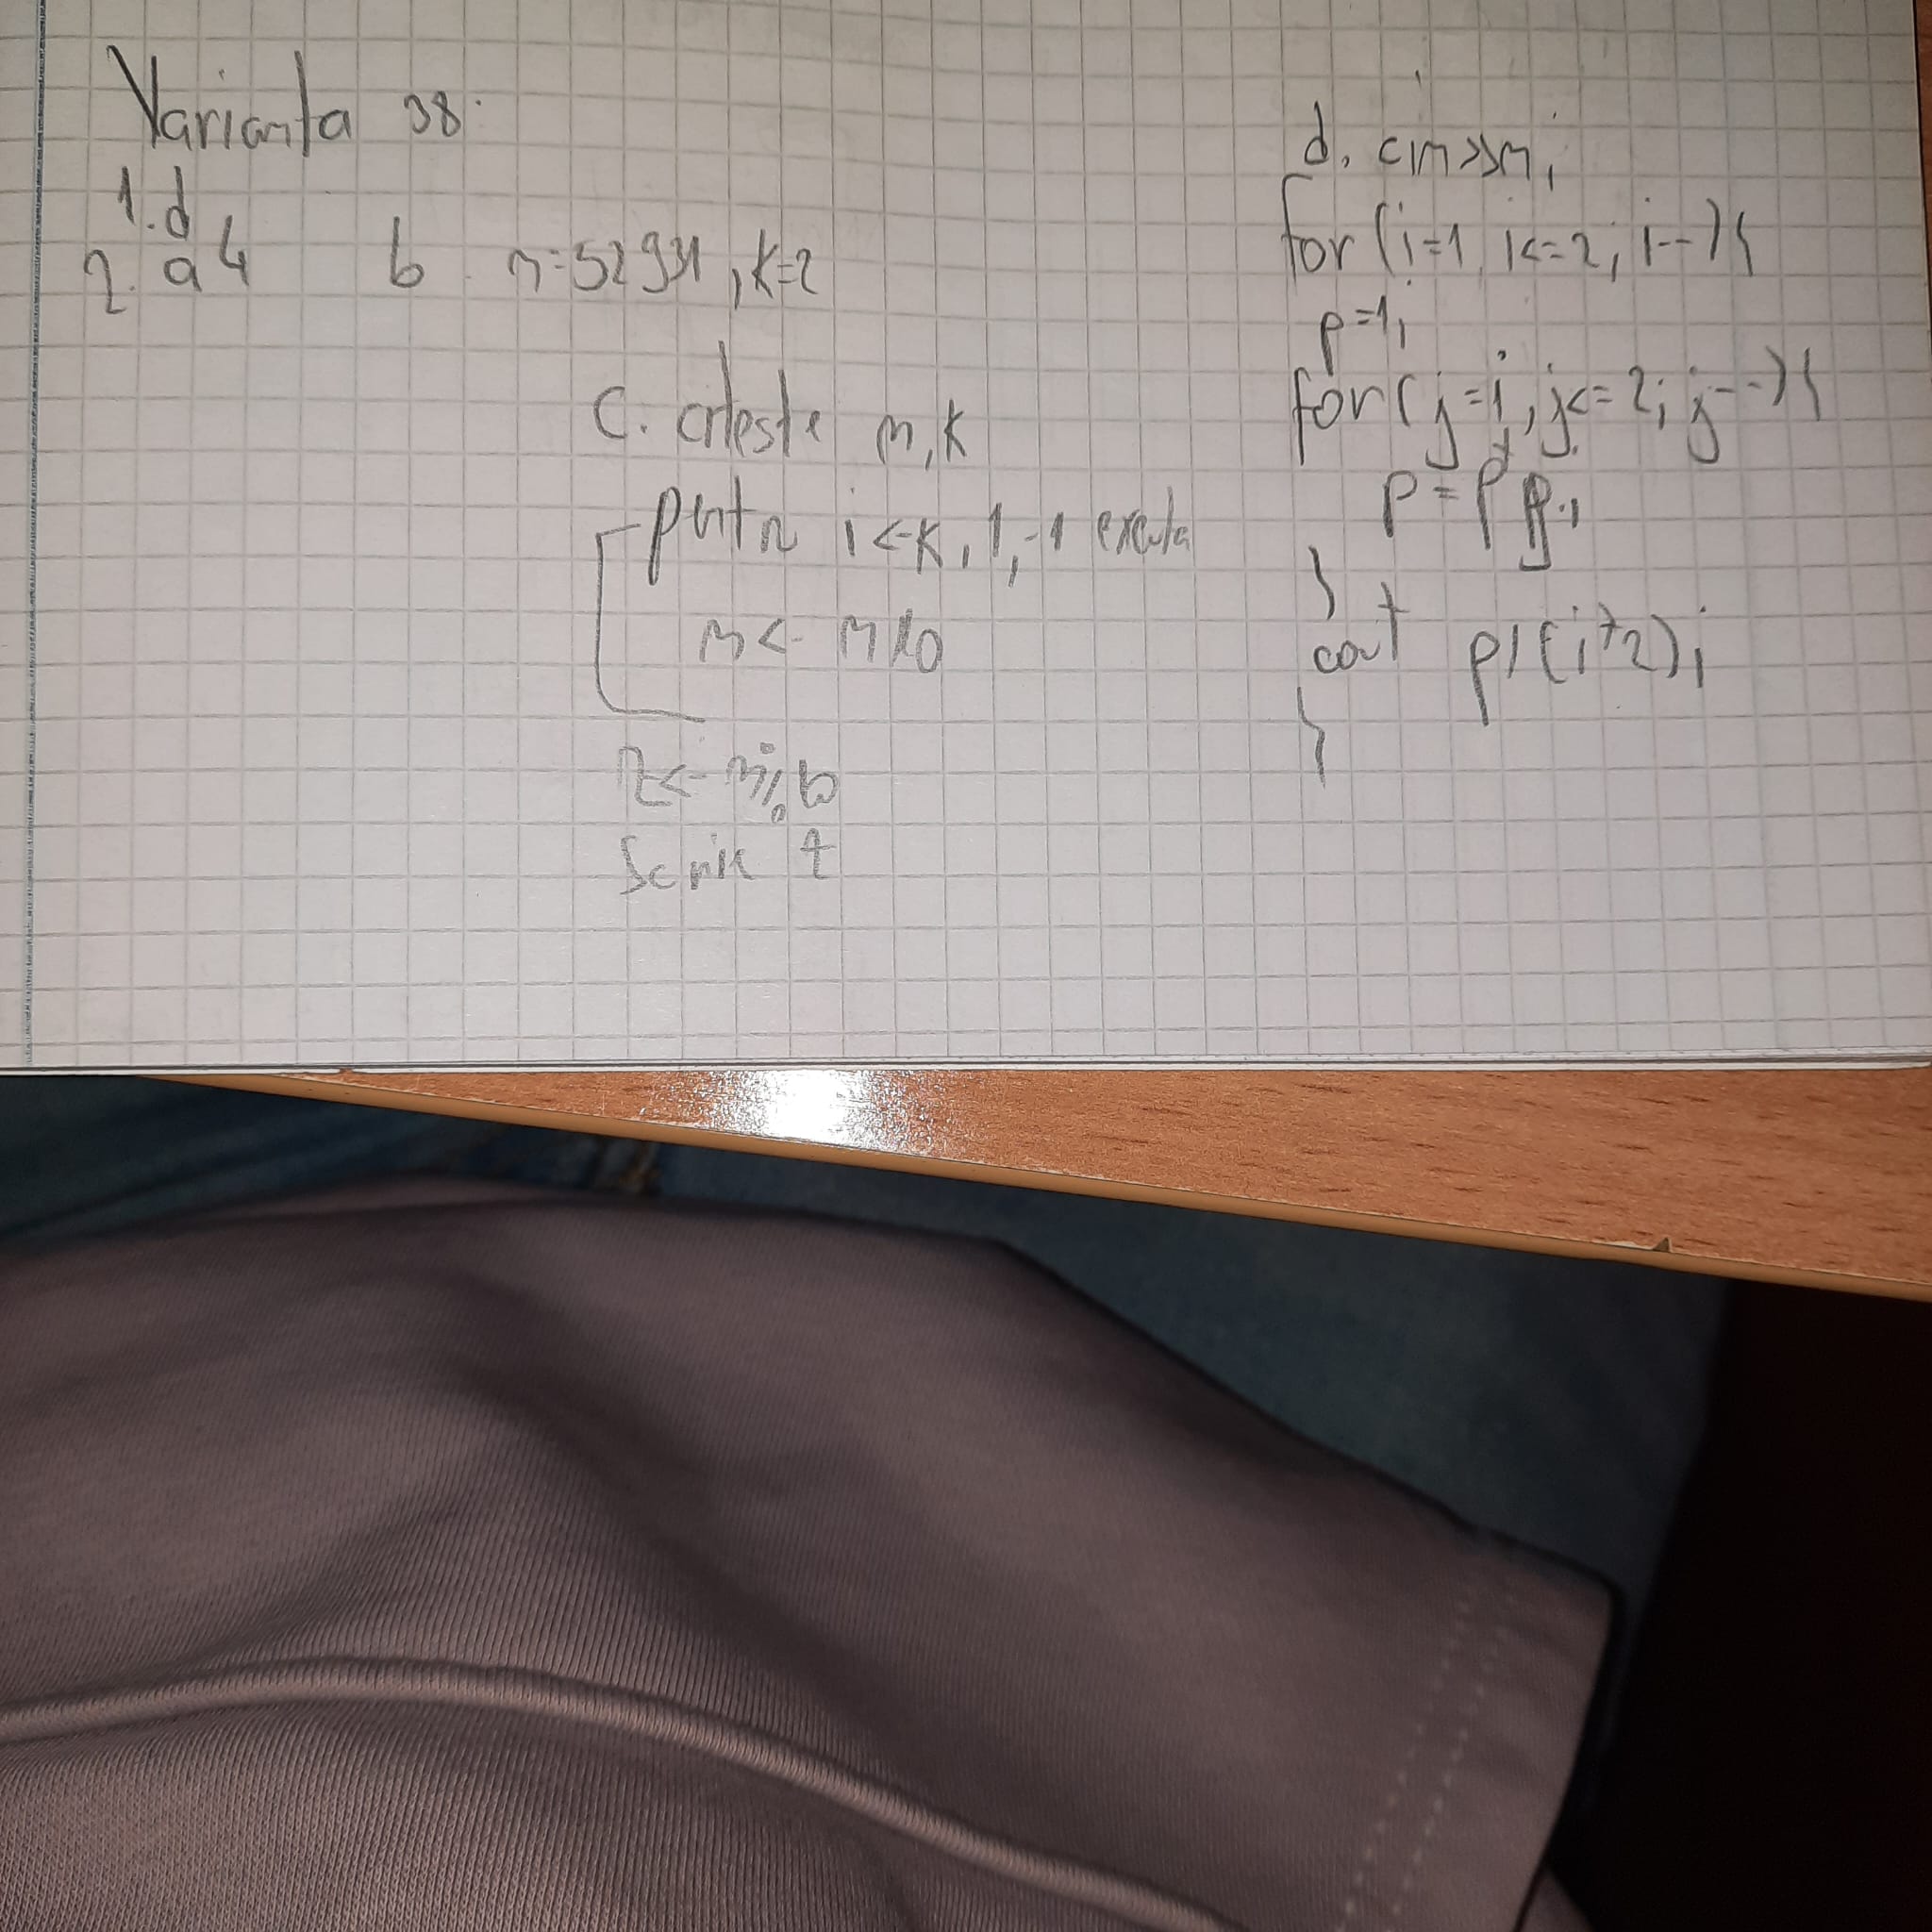 Varianta 38.
1. d
2. a 4 b n=52931, k=2
c. citeste n, k
pentru i<-k, 1, -1 executa
n<- n/10
z<- n%10
Scrie z
d. cin>>n;
for (i=1, i<=2; i--){
p=1;
for (j=i, j<=2; j--){
p=p*
}
cout p/(i*2);
}